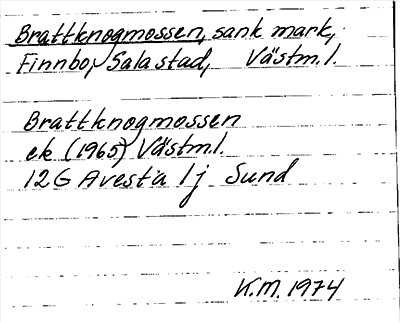 Brattknogmossen, sank mark,
Finnbo, Sala stad, Västm.l.
Brattknogmossen
ek (1965) Västm.l.
12G Avesta 1j Sund
K.M. 1974